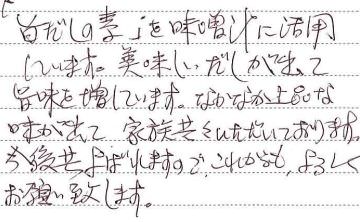 「白だしの素」を味噌汁に活用
しています。美味しいだしが出て
旨味を増しています。なかなか上品な
味が出て 家族共々いただいております。
今後共 よばれますので、これからも、よろしく
お願い致します。